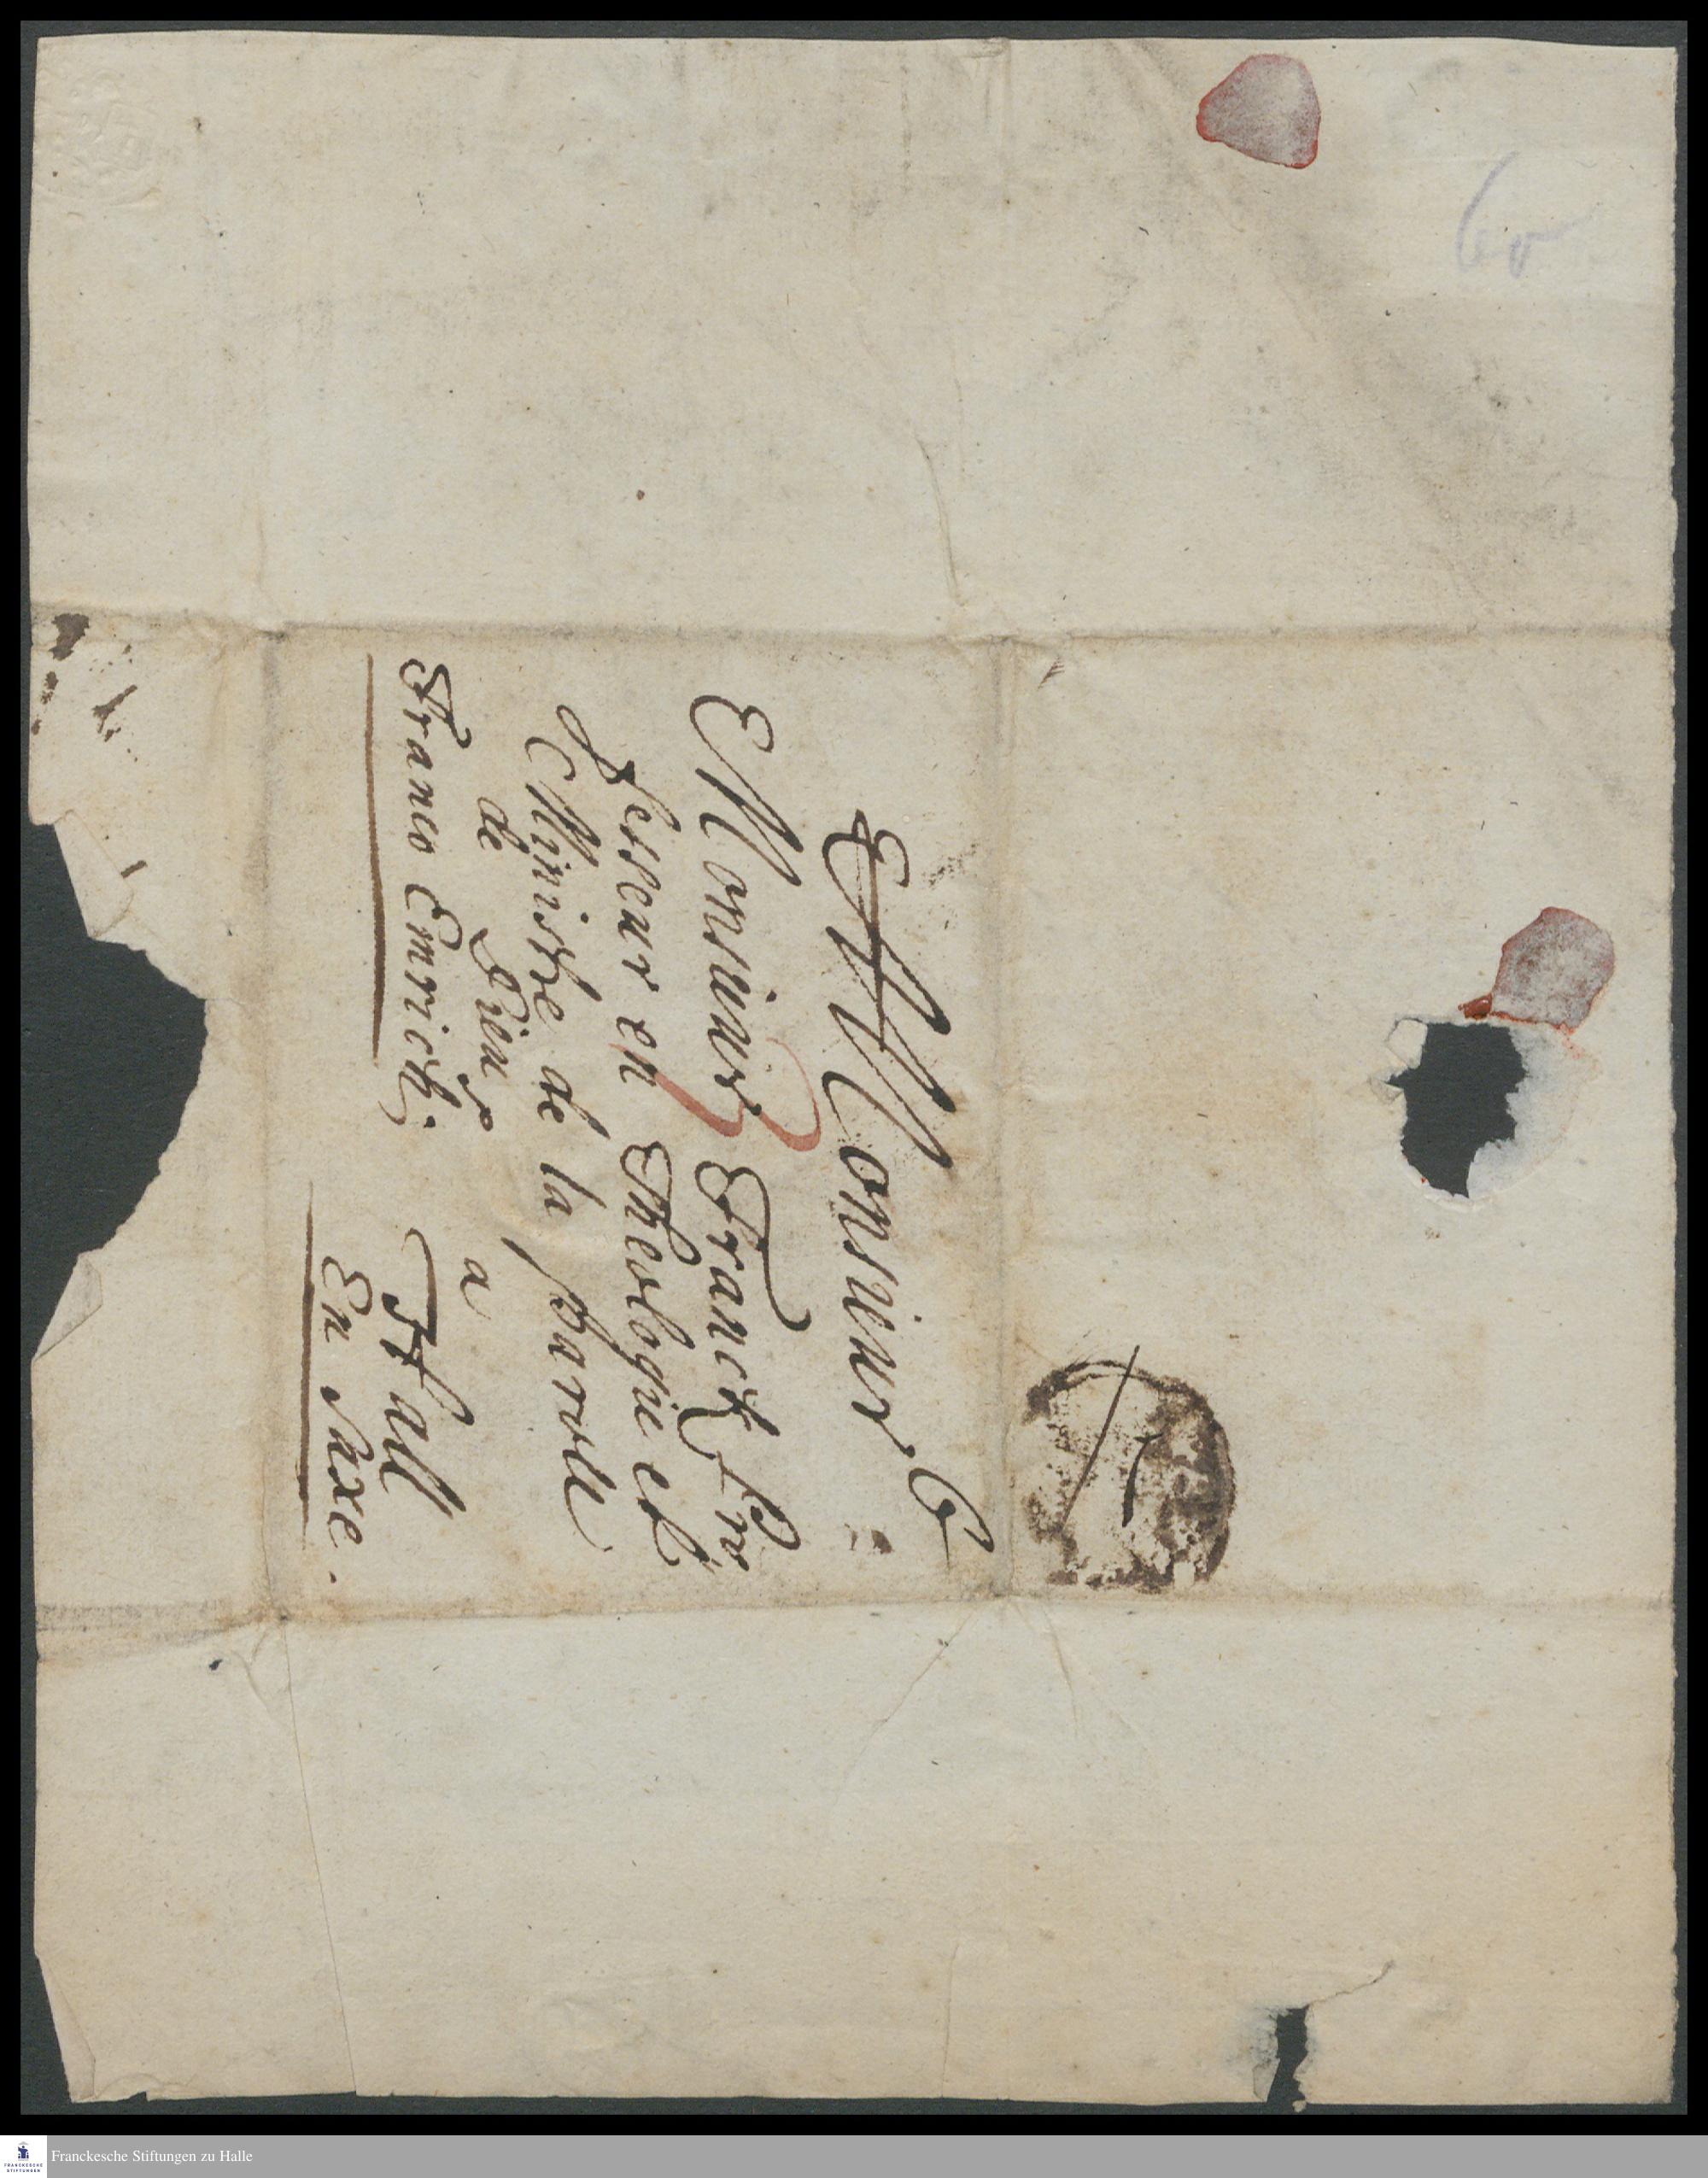 A Monsieur
Monsieur Franck Pro
fesseur en Theologie et
Ministre de la parole
de Dieu
a
Franco Emrich. Hall
En Saxe.
6
60
Franckesche Stiftungen zu Halle
FRANCKESCHE
STIFTUNGEN